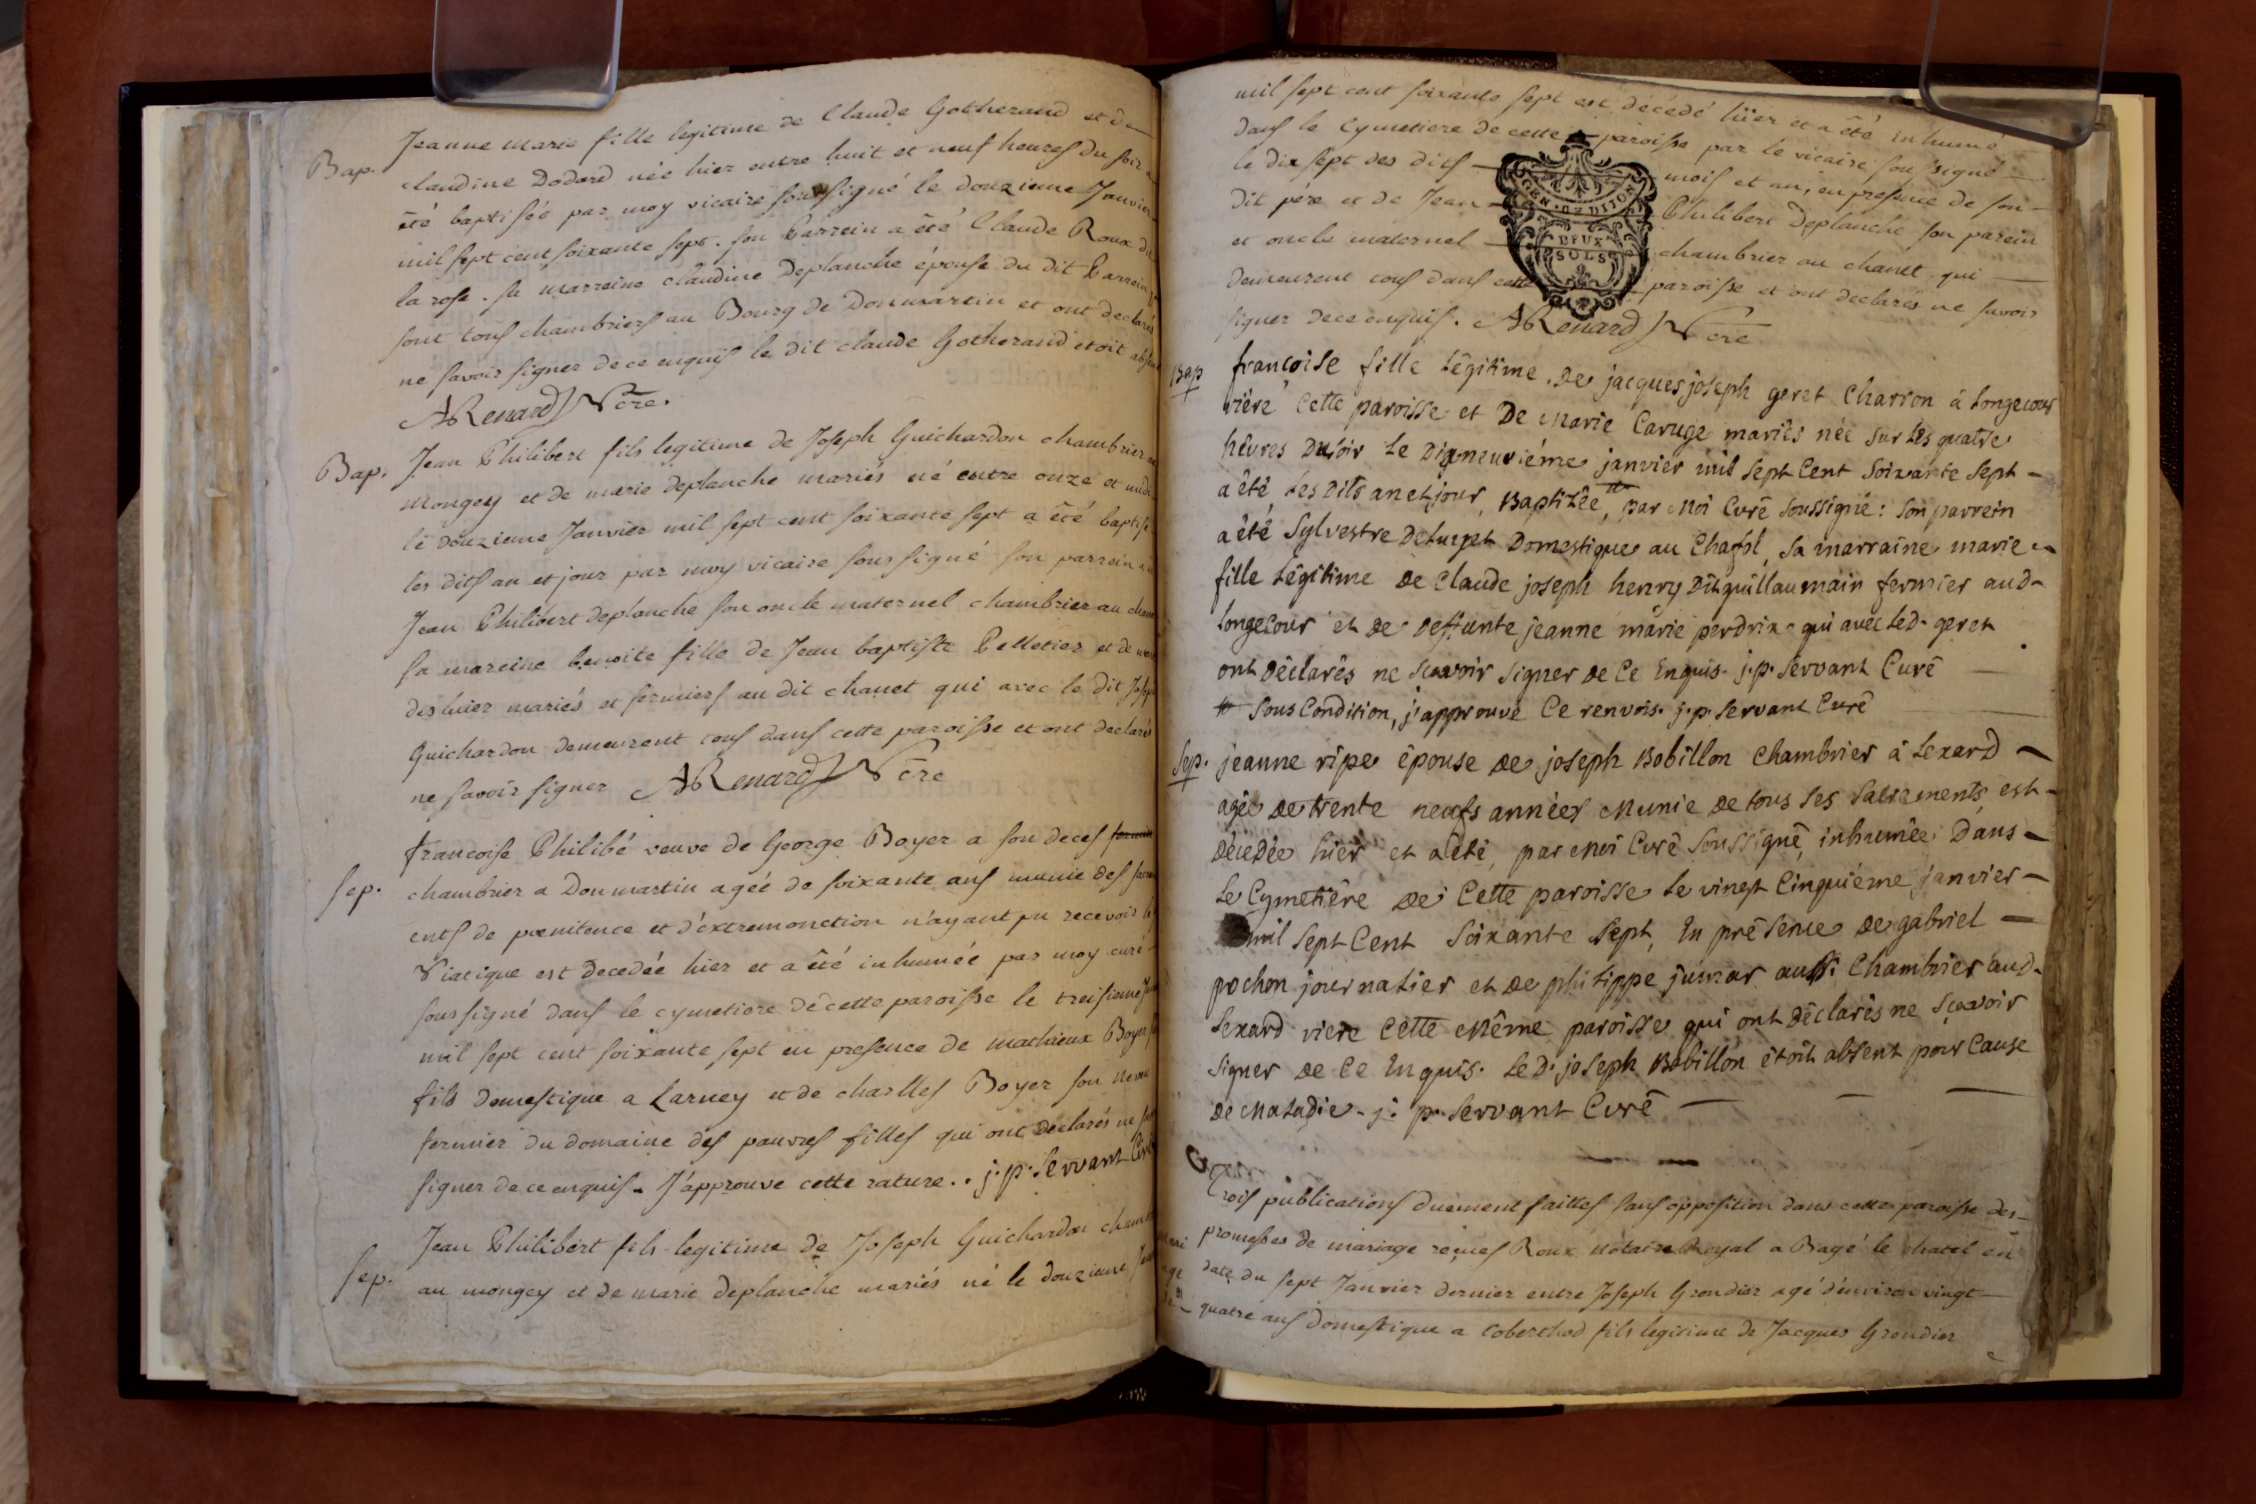 Bap. Jeanne marie fille legitime de Claude Gotherand et de
claudine Dodard née hier entre huit et neuf heures du soir a
été baptisée par moy vicaire soussigné le douzieme Janvier
mil sept cent soixante sept. son Parrein a été Claude Roux dit
la rose. sa marreine claudine Deplanche épouse du dit Parrein
sont tous chambriers au Bourg de Donmartin et ont declarés
ne savoir signer de ce enquis le dit claude Gotherand etoit absent
ARenard Vcre.
Bap. Jean Philibert fils legitime de Joseph Guichardon chambrier au
mongey et de marie deplanche mariés né entre onze et midi
le douzieme Janvier mil sept cent soixante sept a été baptisé
les dits an et jour par moy vicaire soussigné son parrein a été
Jean Philibert deplanche son oncle maternel chambrier au chanet
sa mareine benoite fille de Jean baptiste Pelletier et de
desluier mariés et fermiers au dit chanet qui avec le dit Joseph
Guichardon demeurent tous dans cette paroisse et ont declaré
ne savoir signer ARenard Vcre
francoise Philibé veuve de George Boyer a son deces
Sep. chambrier a Donmartin agée de soixante ans munie des sacrem
ents de pœnitence et d'éxtremonction n'ayant pu recevoir le
Viatique est decedée hier et a été inhumée par moy curé
soussigné dans le cymetiere de cette paroisse le treisieme
mil sept cent soixante sept en presence de mathieux Boyer son
fils domestique a Larney et de charlles Boyer son neveu
fermier du domaine des pauvres filles qui ont declarés ne savoir
signer de ce enquis. J'approuve cette rature.. j. p. Servant Curé
Jean Philibert fils legitime de Joseph Guichardon chambrier
Sep. au mongey et de marie deplanche mariés né le douzieme
mil sept cent soixante sept est décédé hier et a été inhumé
dans le Cymetiere de cette paroisse par le vicaire soussigné
le dix sept des dits mois et an, en presence de son
dit pére et de Jean Philibert Deplanche son parein
et oncle maternel chambrier au chanet qui
demeurent tous dans cette paroisse et ont declarés ne savoir
signer de ce enquis. ARenard Vcre
GEN
DEUX
SOLS
Bap françoise fille Légitime de jacques joseph geret Charron à Longecour
riére Cette paroisse et De Marie Caruge mariés née sur Les quatre
heures Du soir Le Dixneuviéme janvier mil sept Cent soixante sept
a été Les Dits an et jour, Baptizée, par Moi Curé soussigné: son parrein
a été sylvestre Domestique au Chanel, sa marraine marie
fille Légitime De Claude joseph henry Dit guillaumain fermier aud.
Longecour et De Deffunte jeanne marie perdrix qui avec Led. geret
ont Déclarés ne sçavoir signer De Ce Enquis. j. p. servant Curé
sous Condition, j'approuve Ce renvois. j. p. servant Curé
Sep. jeanne ripe épouse De joseph Bobillon Chambrier à Lexard
agée De trente neufs années Munie De tous ses sacrements, est
Décédée hier et a été, par Moi Curé soussigné, inhumée Dans
Le Cymetiére De Cette paroisse Le vingt Cinquiéme janvier
mil sept Cent soixante sept, En présence De gabriel
pochon journalier et De philippe junar aussi Chambrier aud.
Lexard riere Cette Même paroisse qui ont Déclarés ne sçavoir
signer De Ce Enquis. Le D. joseph Bobillon étoit absent pour Cause
De Maladie. j. p. Servant Curé
Trois publications duement faittes sans opposition dans cette paroisse des
promesses de mariage reçues Roux Notaire Royal a Bagé le chatel en
date du sept Janvier dernier entre Joseph Grondier agé d'environ vingt
quatre ans domestique a Coberthod fils legitime de Jacques Grondier